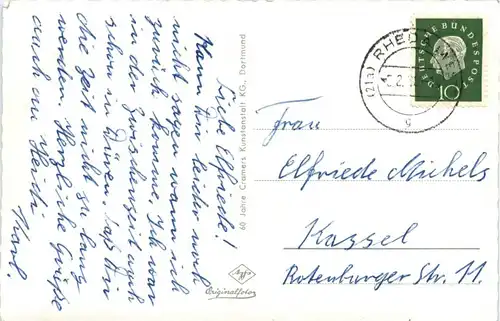 Liebe Elfriede!
Kann Dir leider noch
nicht sagen wann ich
zurück komme. Ich war
schon in Düren. Laß Dir
die Zeit nicht zu lang
werden. Herzliche Grüße
auch an Heidi
Karl.
60 Jahre Cramers Kunstanstalt KG., Dortmund
Originalfoto
(21a) RHED
g
DEUTSCHE BUNDESPOST
10
Frau
Elfriede Michels
Kassel
Rotenburger Str. 11.